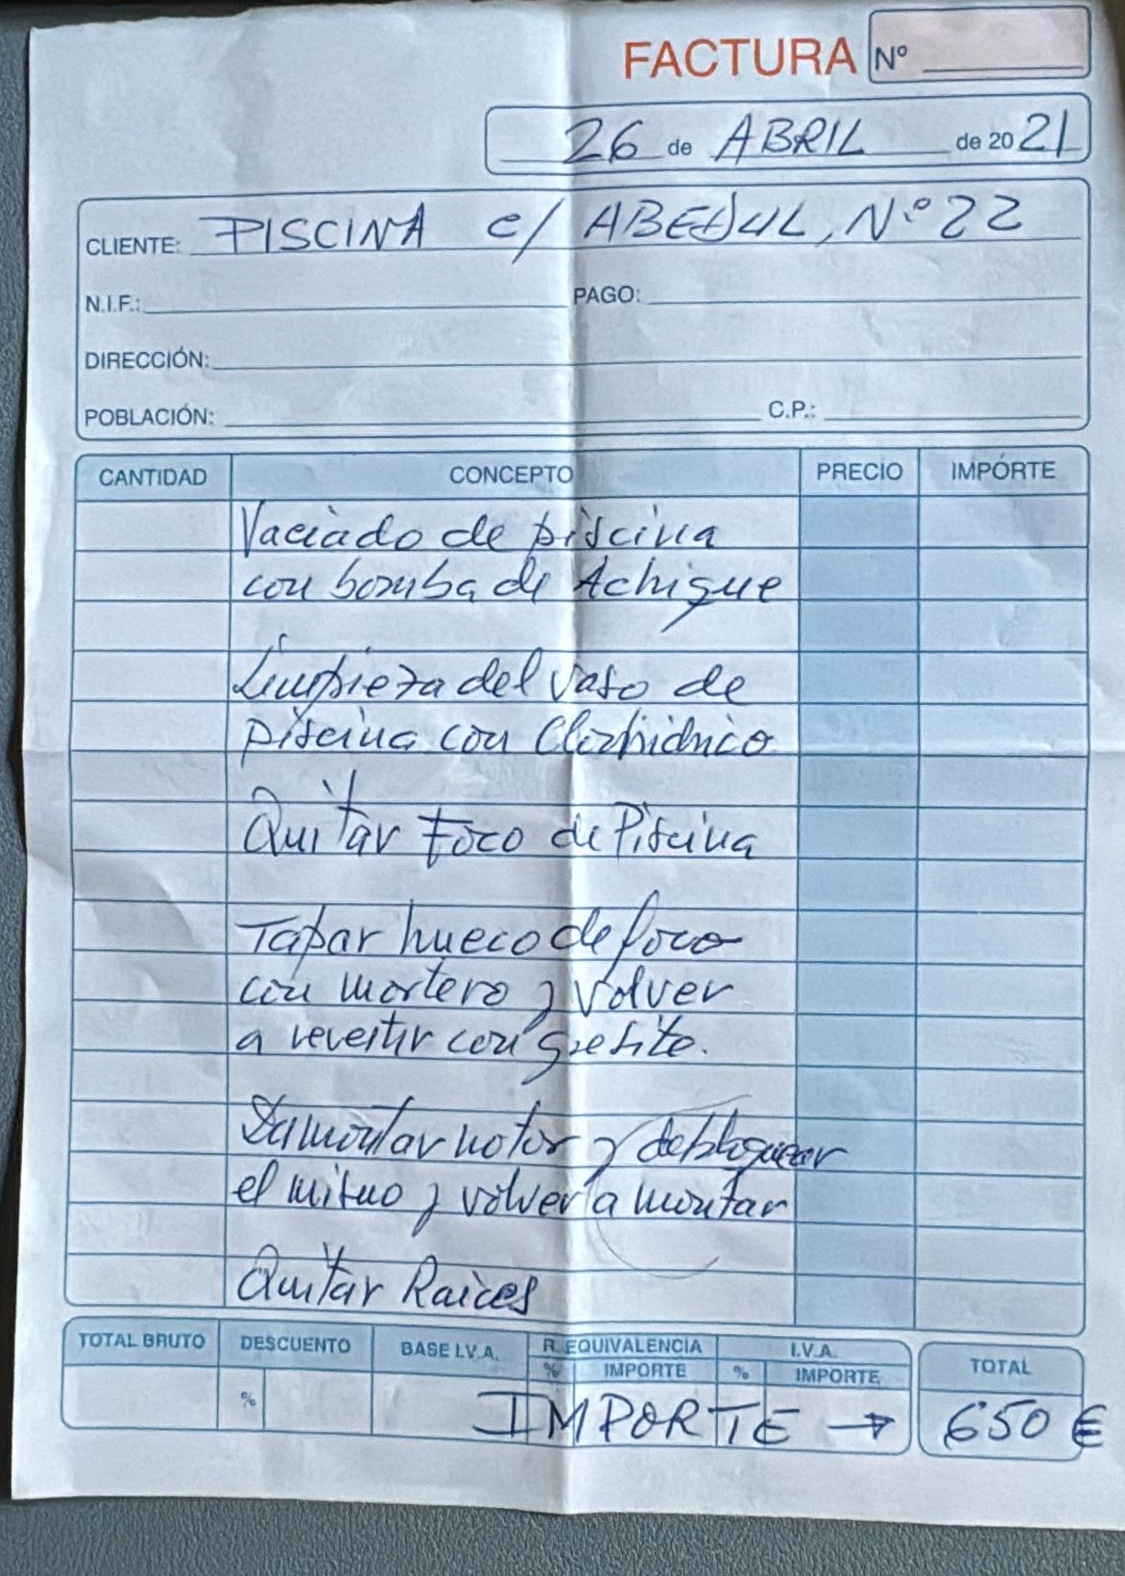 FACTURA Nº
26 de ABRIL de 2021
CLIENTE: PISCINA c/ ABEDUL, Nº 22
N.I.F.: PAGO:
DIRECCIÓN:
POBLACIÓN: C.P.:
CANTIDAD CONCEPTO PRECIO IMPORTE
Vaciado de piscina
con bomba de Achique
Limpieza del vaso de
piscina con Clorhidrico
Quitar Foco de Piscina
Tapar hueco de foco
con mortero y volver
a revestir con gresite.
Desmontar motor y desbloquear
el mismo y volver a montar
Quitar Raices
TOTAL BRUTO DESCUENTO BASE I.V.A. R. EQUIVALENCIA I.V.A. TOTAL
% IMPORTE % IMPORTE
% IMPORTE → 650 €